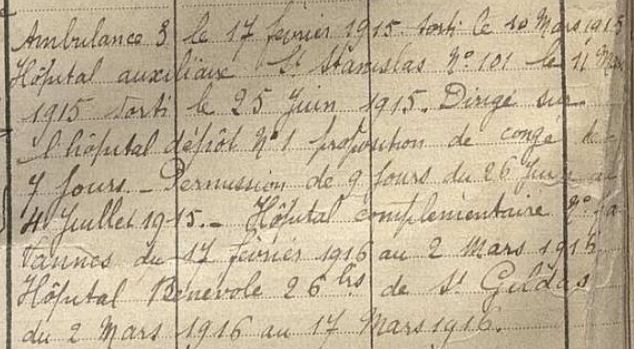 Ambulance 3 le 17 février 1915 sorti le 10 Mars 1915
Hôpital auxiliaire St Stanislas N° 101 le 11 Mars
1915 sorti le 25 Juin 1915. Dirigé sur
l'hôpital dépôt N° 1 proposition de congé de
7 Jours. - Permission de 9 Jours du 26 Juin au
4 Juillet 1915. - Hôpital complémentaire N°
Vannes du 17 février 1916 au 2 Mars 1916
Hôpital Bénévole 26 bis de St Gildas
du 2 Mars 1916 au 17 Mars 1916.